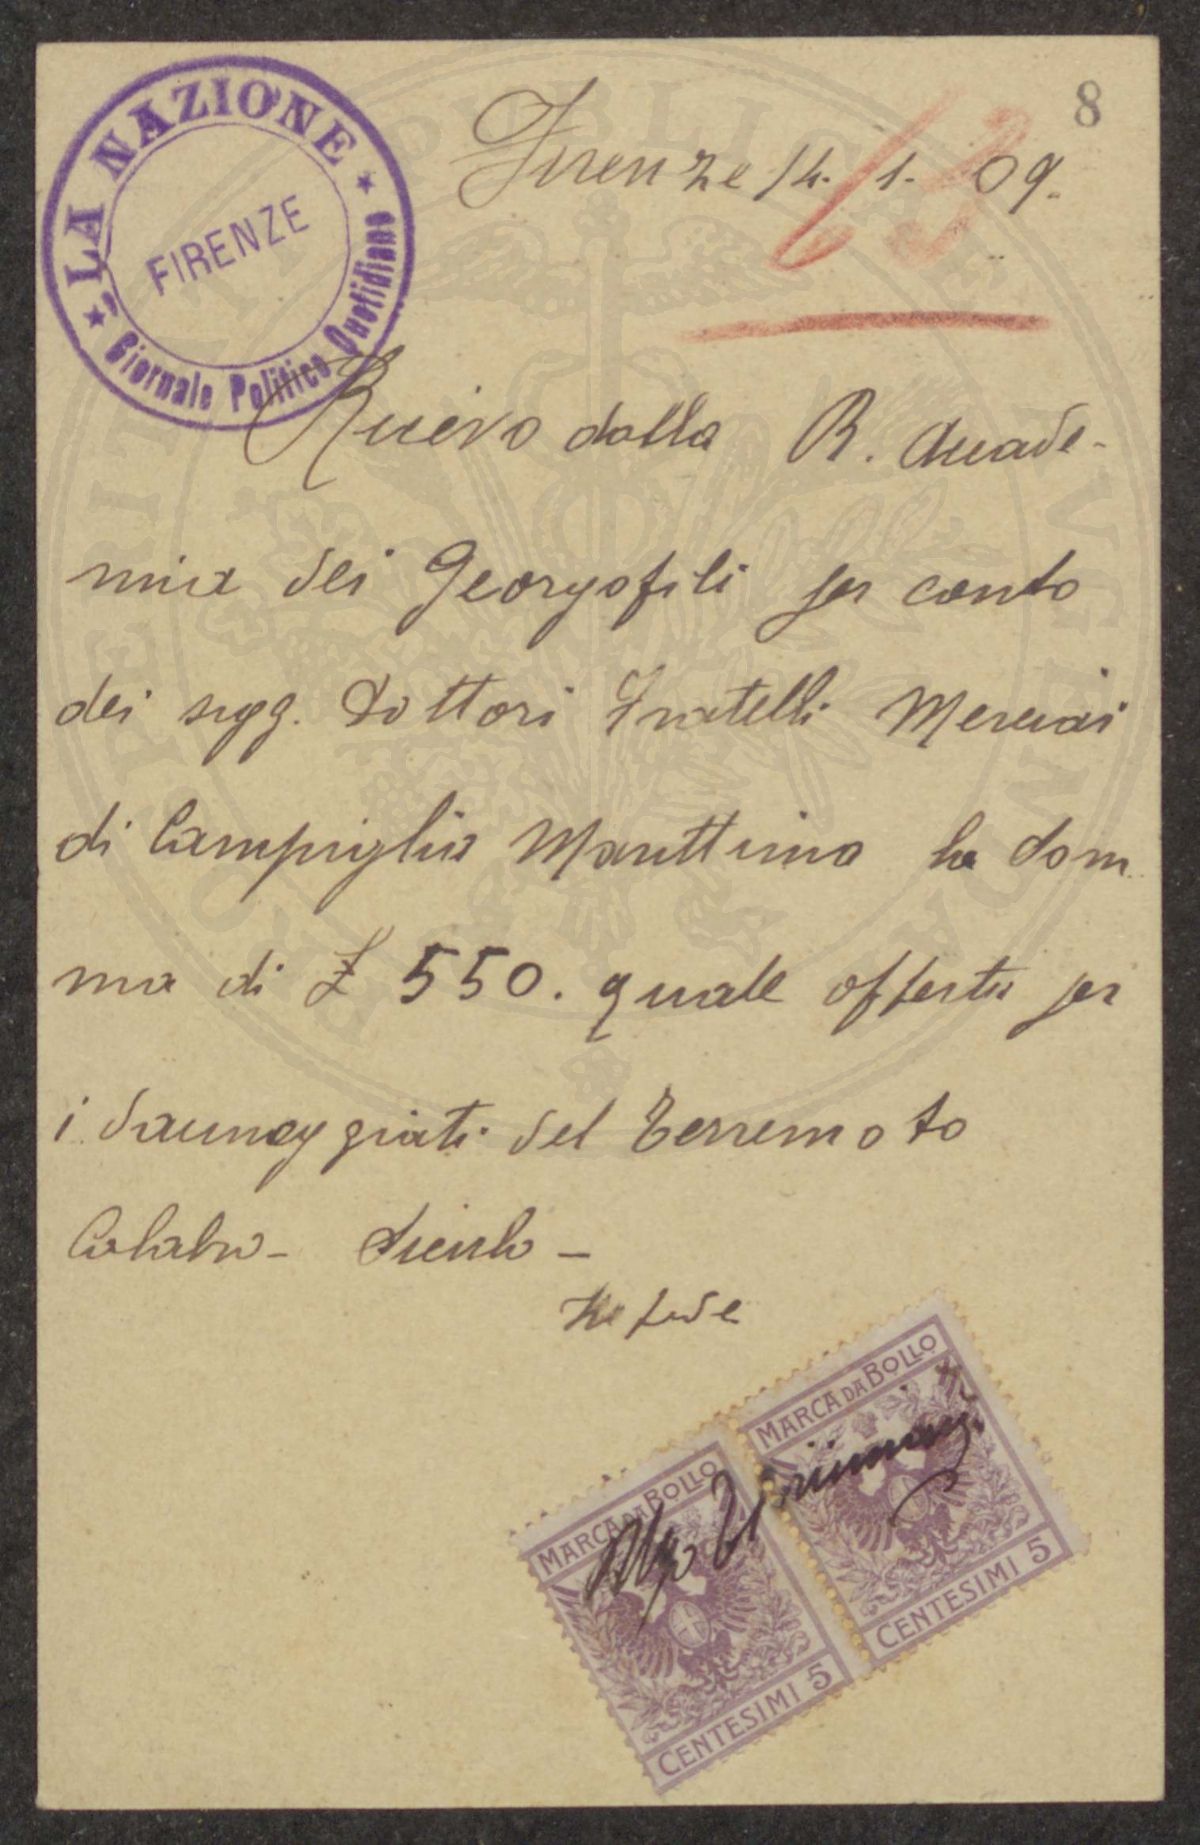 8
LA NAZIONE
FIRENZE
Giornale Politico Quotidiano
Firenze 14. 1. 09.
63
Ricevo dalla R. Accade-
mia dei Georgofili per conto
dei sigg. Dottori Fratelli Merciai
di Campiglia Marittima la som
ma di £ 550. quale offerta per
i danneggiati del terremoto
Calabro - Siculo -
In fede
MARCA DA BOLLO
CENTESIMI 5
MARCA DA BOLLO
CENTESIMI 5